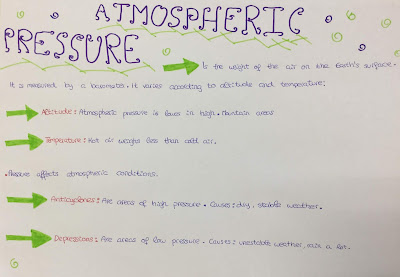 ATMOSPHERIC
PRESSURE
Is the weight of the air on the Earth's surface.
It is measured by a barometre. It varies according to altitude and temperature:
Altitude: Atmospheric pressure is lower in high. Mountain areas
Temperature: Hot air weighs less than cold air.
·Pressure affects atmospheric conditions.
Anticyclones: Are areas of high pressure. Causes: dry, stable weather.
Depressions: Are areas of low pressure. Causes: unestable weather, rain a lot.